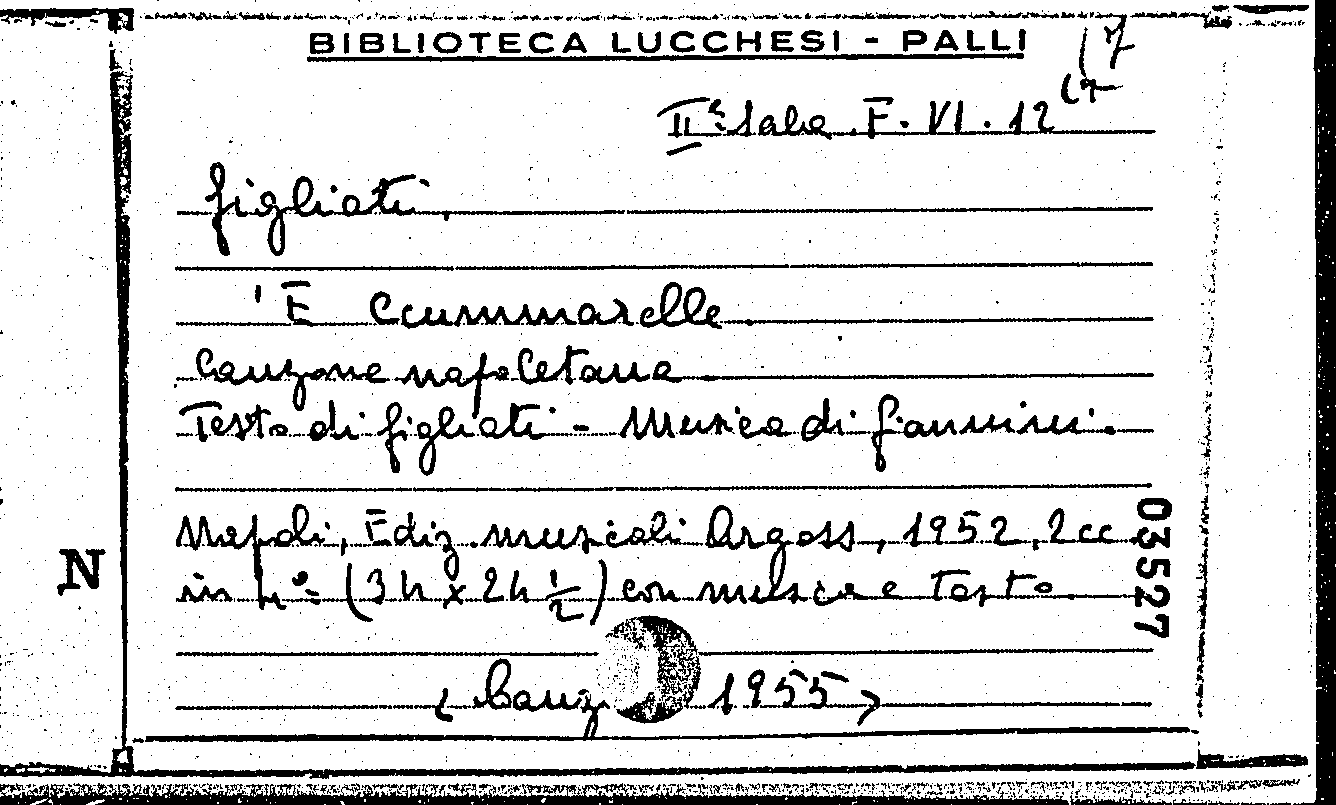 BIBLIOTECA LUCCHESI - PALLI
(7
IIª Sala. F. VI. 12 (7
Figliati.
'E Ccummarelle.
Canzone napoletana.
Testo di Figliati - Musica di Giannini.
Napoli, Ediz. musicali Argoss, 1952, 2 cc.
in 4º = (34 x 24 1/2) con musica e testo.
(Canz 1955)
N
03527